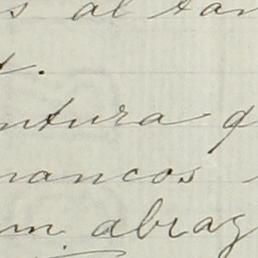 s al tan
t.
ntura q
nancos
un abraz